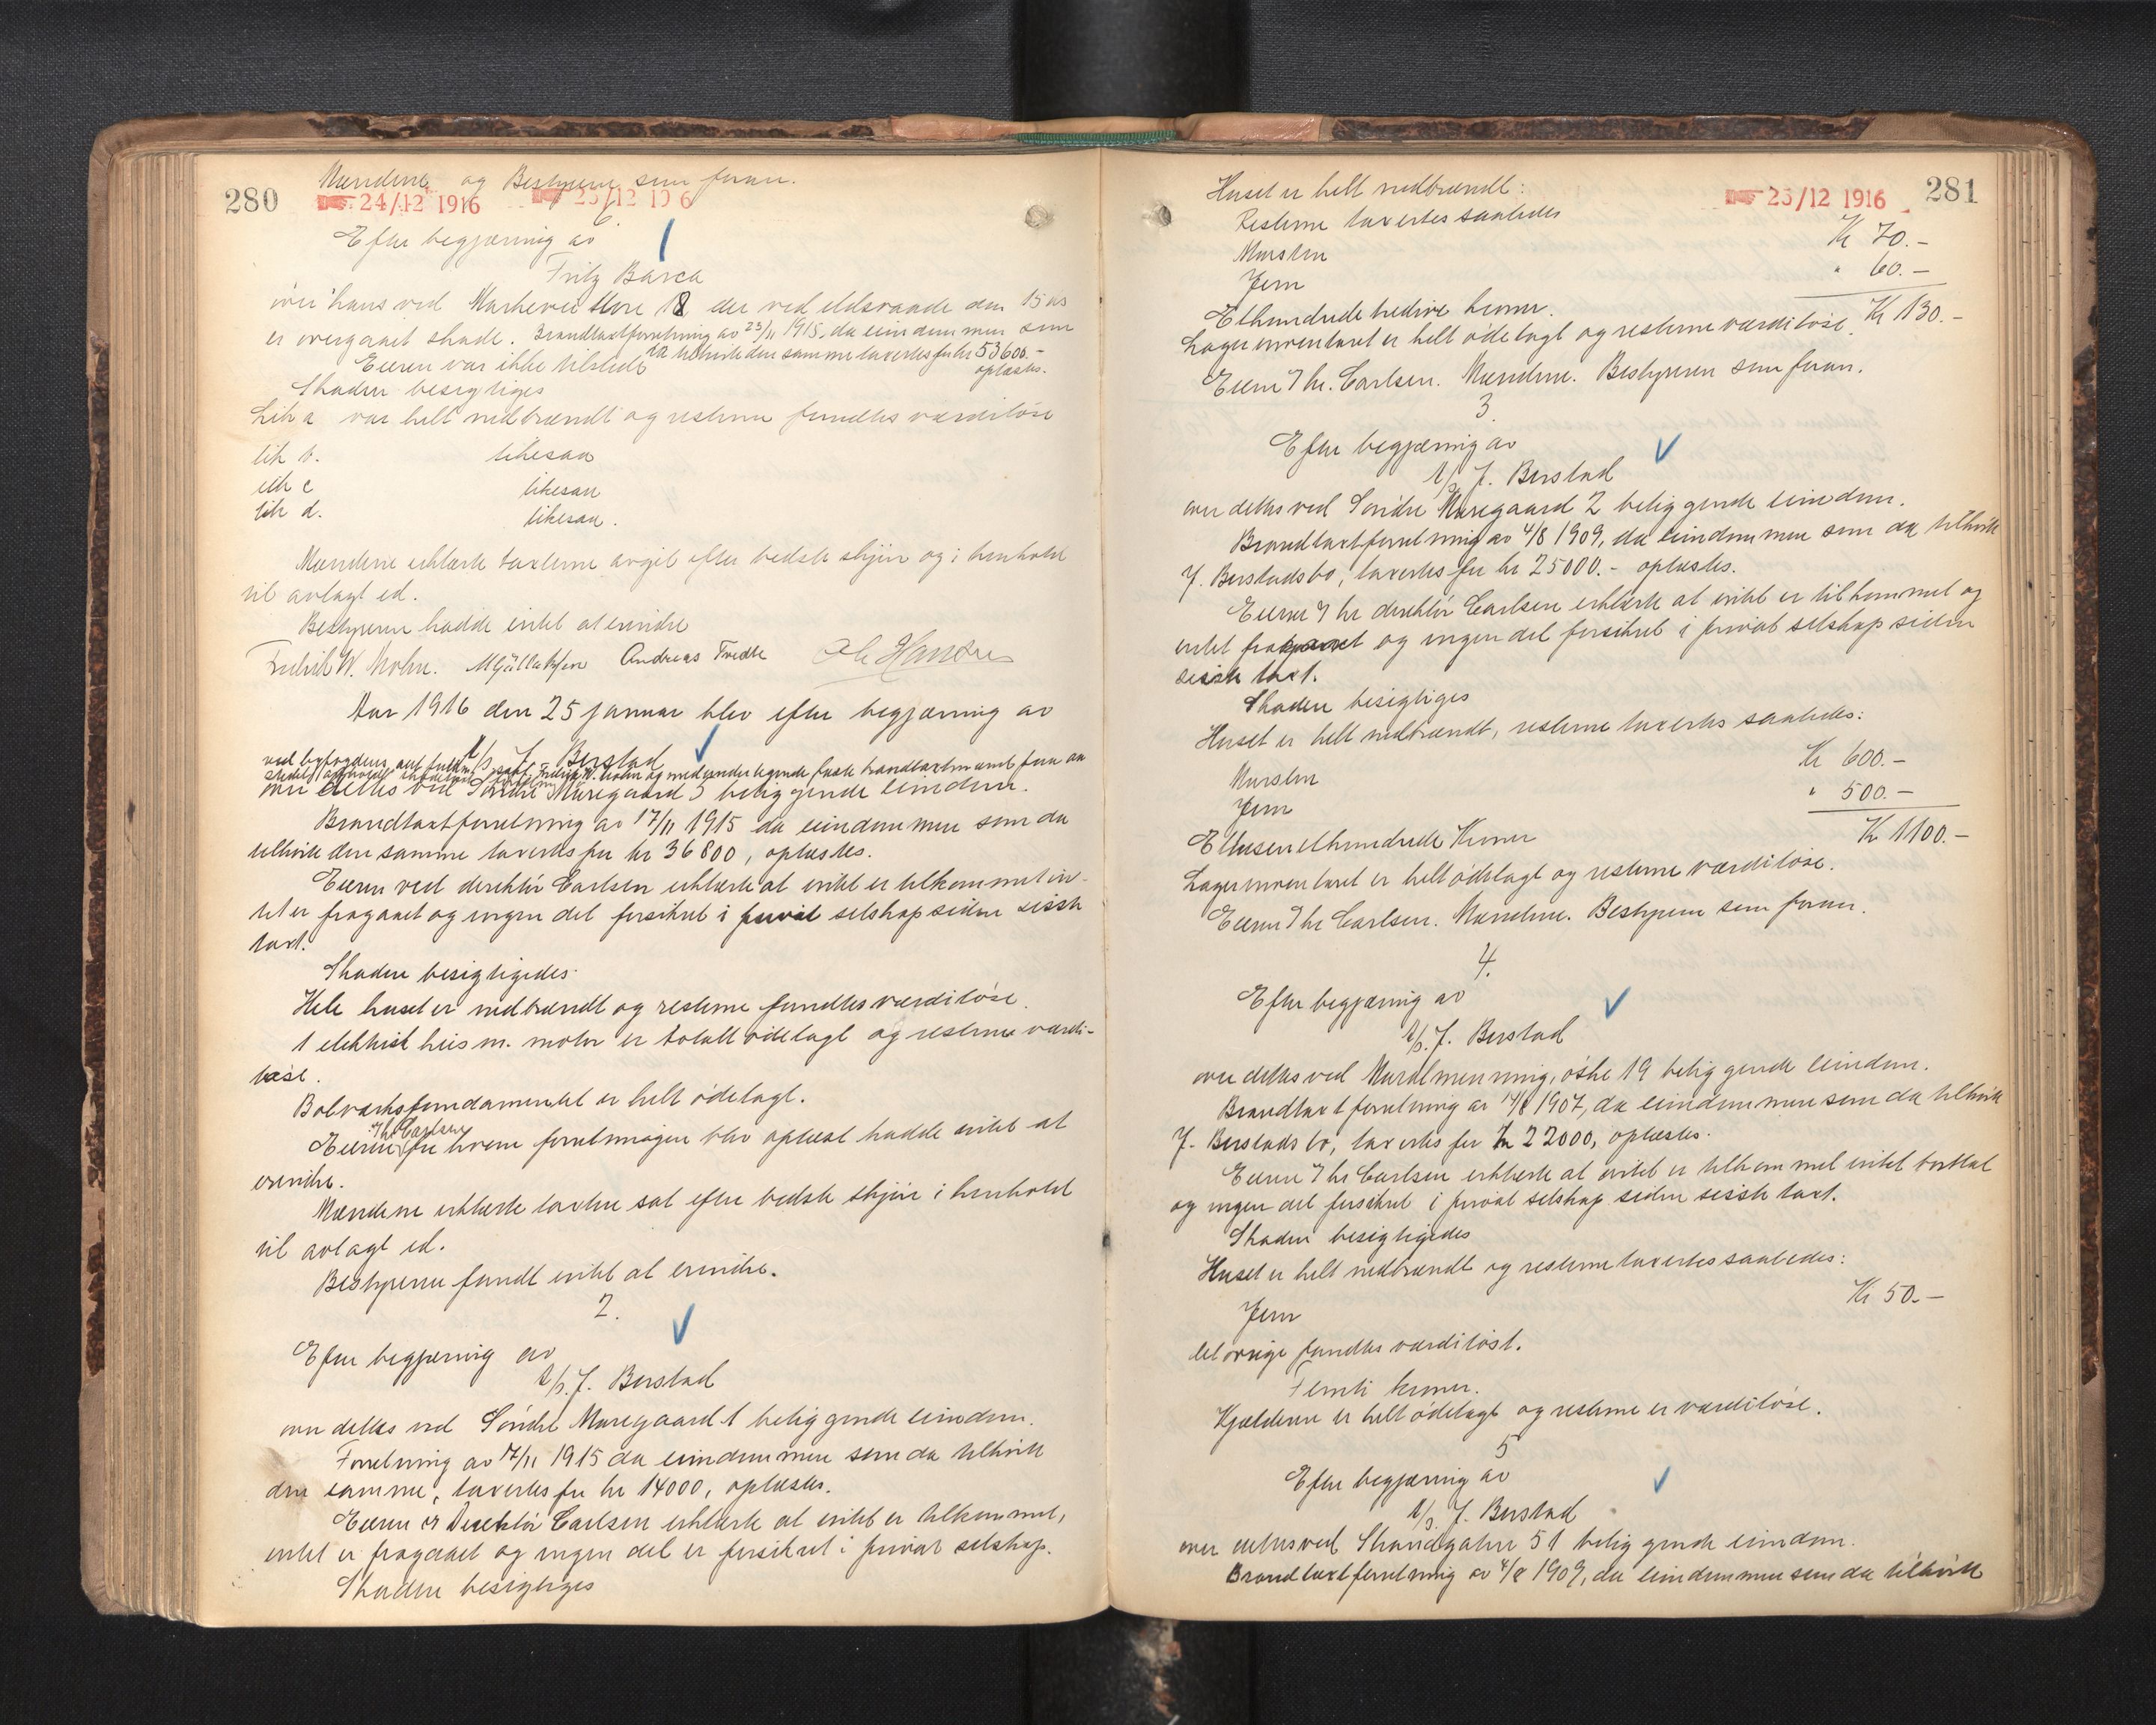 280
Mændene og Bestyreren som foran.
24/12 1916 25/12 1916
6.
Efter begjæring av
Fritz Barca
over hans ved Markeveien store 18 der ved eldsvaade den 15 ds
er overgaaet skade. Brandtaxtforretning av 23/11 1915, da eiendommen som
da tilhørte den samme taxertes for kr 53600.-
Eieren var ikke tilstede oplæstes.
Skaden besigtiges
Lit a var helt nedbrændt og resterne fundtes værdiløse
lit b. likesaa
lit c likesaa
lit d. likesaa.
Mændene erklærte taxterne avgit efter bedste skjøn og i henhold
til avlagt ed.
Bestyreren hadde intet at erindre
Fredrik W. Mohn. Andreas Tvedte Ole Hansen
Aar 1916 den 25 januar blev efter begjæring av
A/S J. Berstad
ved byfogdens aut fuldm. Fredrik W. Mohn og medundertegnede faste brandtaxtmænd foretaget
over dettes ved Søndre Muregaard 3 beliggende eiendom.
Brandtaxtforretning av 17/11 1915 da eiendommen som da
tilhørte den samme taxertes for kr 36800, oplæstes.
Eieren ved direktør Carlsen erklærte at intet er tilkommet in-
tet er fragaaet og ingen del forsikret i privat selskap siden sisste
taxt.
Skaden besigtigedes.
Hele huset er nedbrændt og resterne fundtes værdiløse.
1 elektrisk heis m. motor er totalt ødelagt og resterne værdi-
løse.
Bolverksfundamentet er helt ødelagt.
Thr Carlsen
Eieren for hvem forretningen blev oplæst hadde intet at
erindre.
Mændene erklærte taxten sat efter bedste skjøn i henhold
til avlagt ed.
Bestyreren fandt intet at erindre.
2.
Efter begjæring av
A/S. J. Berstad
over dettes ved Søndre Muregaard 1 beliggende eiendom.
Forretning av 17/11 1915 da eiendommen som da tilhørte
den samme, taxertes for kr 14000, oplæstes.
Eieren v Direktør Carlsen erklærte at intet er tilkommet,
intet er fragaaet og ingen del er forsikret i privat selskap.
Skaden besigtiges
25/12 1916 281
Huset er helt nedbrændt:
Resterne taxertes saaledes
Mursten Kr 70.-
Jern " 60.-
Ethundrede tredive kroner. Kr 130.-
Lagerinventaret er helt ødelagt og resterne værdiløse.
Eieren Thr. Carlsen. Mændene. Bestyreren som foran.
3
Efter begjæring av
A/S J. Berstad
over dettes ved Søndre Muregaard 2 beliggende eiendom.
Brandtaxtforretning av 4/8 1909, da eiendommen som da tilhørte
J. Berstads bo, taxertes for kr 25000.- oplæstes.
Eieren Thr direktør Carlsen erklærte at intet er tilkommet og
intet fragaaet og ingen del forsikret i privat selskap siden
sisste taxt.
Skaden besigtiges
Huset er helt nedbrændt, resterne taxertes saaledes:
Mursten Kr 600.-
Jern " 500.-
Ettusenethundrede Kroner Kr 1100.-
Lagerinventaret er helt ødelagt og resterne værdiløse.
Eieren Thr Carlsen. Mændene. Bestyreren som foran.
4.
Efter begjæring av
A/S. J. Berstad
over dettes ved Muralmenning, østre 19 beliggende eiendom.
Brandtaxtforretning av 14/8 1907, da eiendommen som da tilhørte
J. Berstads bo, taxertes for kr 22000, oplæstes.
Eieren Thr Carlsen erklærte at intet er tilkommet intet borttat
og ingen del forsikret i privat selskap siden sisste taxt.
Skaden besigtigedes
Huset er helt nedbrændt og resterne taxertes saaledes:
Jern Kr 50.-
det øvrige fundtes værdiløst.
Femti kroner.
Kjælderen er helt ødelagt og resterne er værdiløse.
5
Efter begjæring av
A/S. J. Berstad
over dettes ved Strandgaten 51 beliggende eiendom.
Brandtaxtforretning av 4/8 1909, da eiendommen som da tilhørte